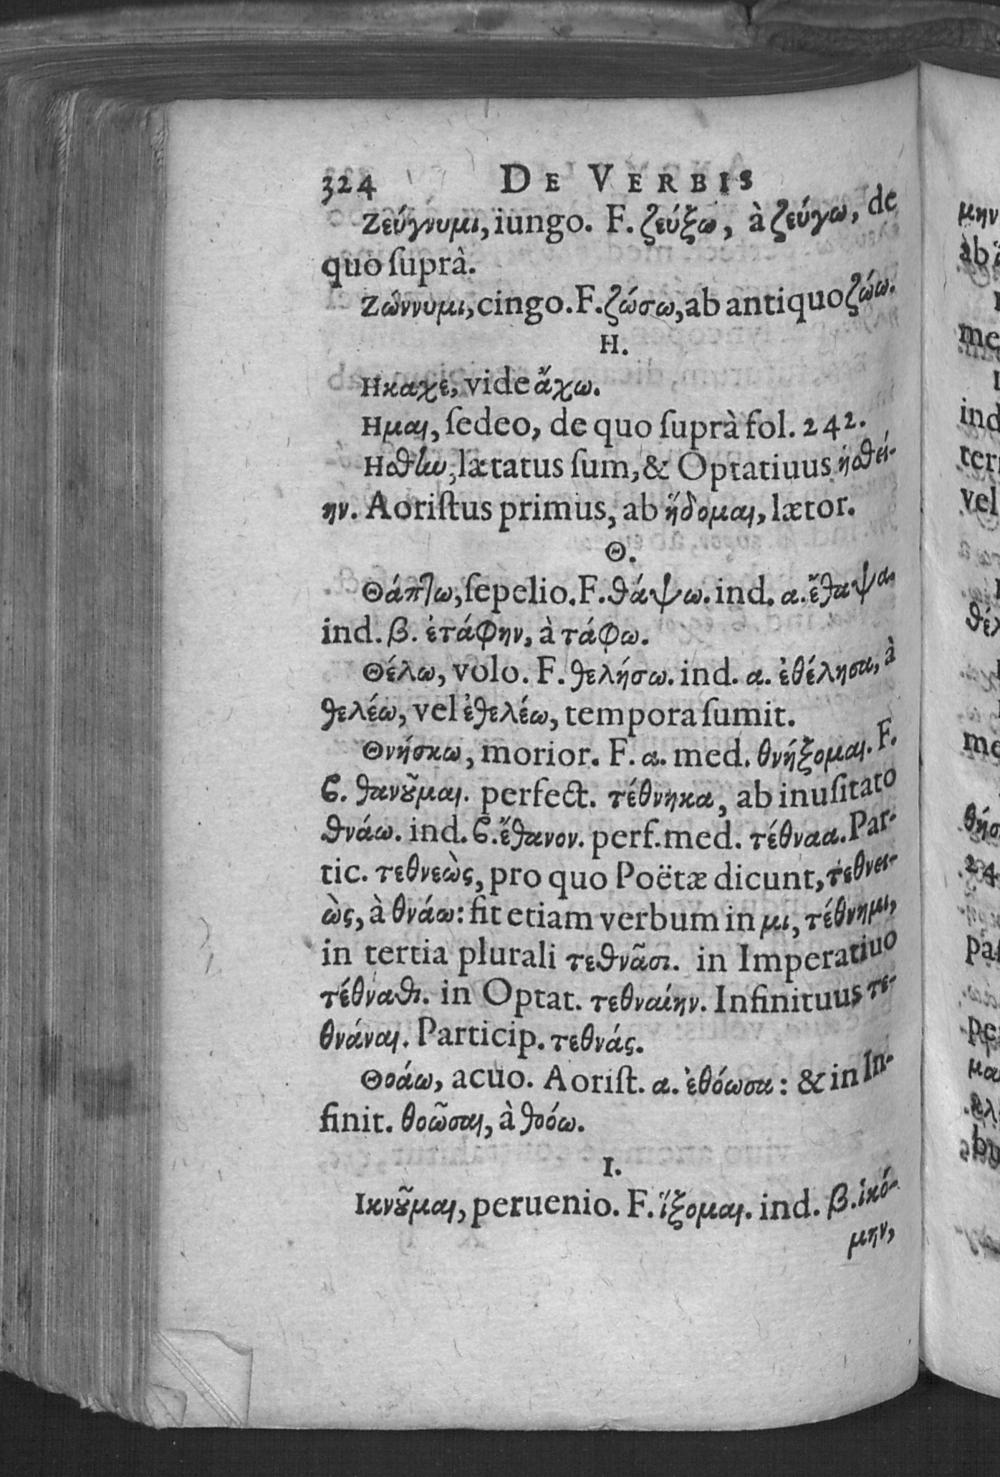 324 DE VERBIS
Ζεύγνυμι, iungo. F. ζεύξω, à ζεύγω, de
quo ſuprà.
Ζώννυμι, cingo. F. ζώσω, ab antiquo ζώω.
Η.
Ηκαχε, vide ἄχω.
Ημαι, ſedeo, de quo ſuprà fol. 242.
Ησθην, lætatus ſum, & Optatiuus ἡσθεί-
ην. Aoriſtus primus, ab ἥδομαι, lætor.
Θ.
Θάπτω, ſepelio. F. θάψω. ind. α. ἔθαψα.
ind. β. ἐτάφην, à τάφω.
Θέλω, volo. F. θελήσω. ind. α. ἐθέλησα, à
θελέω, vel ἐθελέω, tempora ſumit.
Θνήσκω, morior. F. α. med. θνήξομαι. F.
β. θανοῦμαι. perfect. τέθνηκα, ab inuſitato
θνάω. ind. β. ἔθανον. perf. med. τέθναα. Par-
tic. τεθνεὼς, pro quo Poëtæ dicunt, τεθνει-
ὼς, à θνάω: fit etiam verbum in μι, τέθνημι,
in tertia plurali τεθνᾶσι. in Imperatiuo
τέθναθι. in Optat. τεθναίην. Infinituus τε-
θνάναι. Particip. τεθνάς.
Θοάω, acuo. Aoriſt. α. ἐθόωσα: & in In-
finit. θοῶσαι, à θοόω.
Ι.
Ικνοῦμαι, peruenio. F. ἵξομαι. ind. β. ἱκό-
μην,
μην
ab
me
ind
ter
vel
θέλ
me
θήσ
24
Paſ
pe
μα
bu